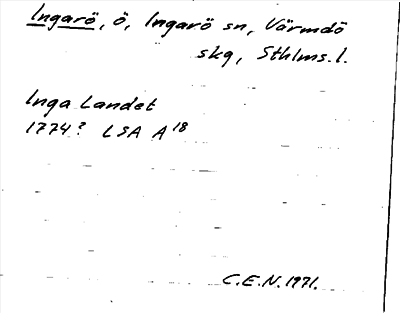 Ingarö, ö, Ingarö sn, Värmdö
skg, Sthlms. l.
Inga Landet
1774? LSA A 18
C.E.N. 1971.